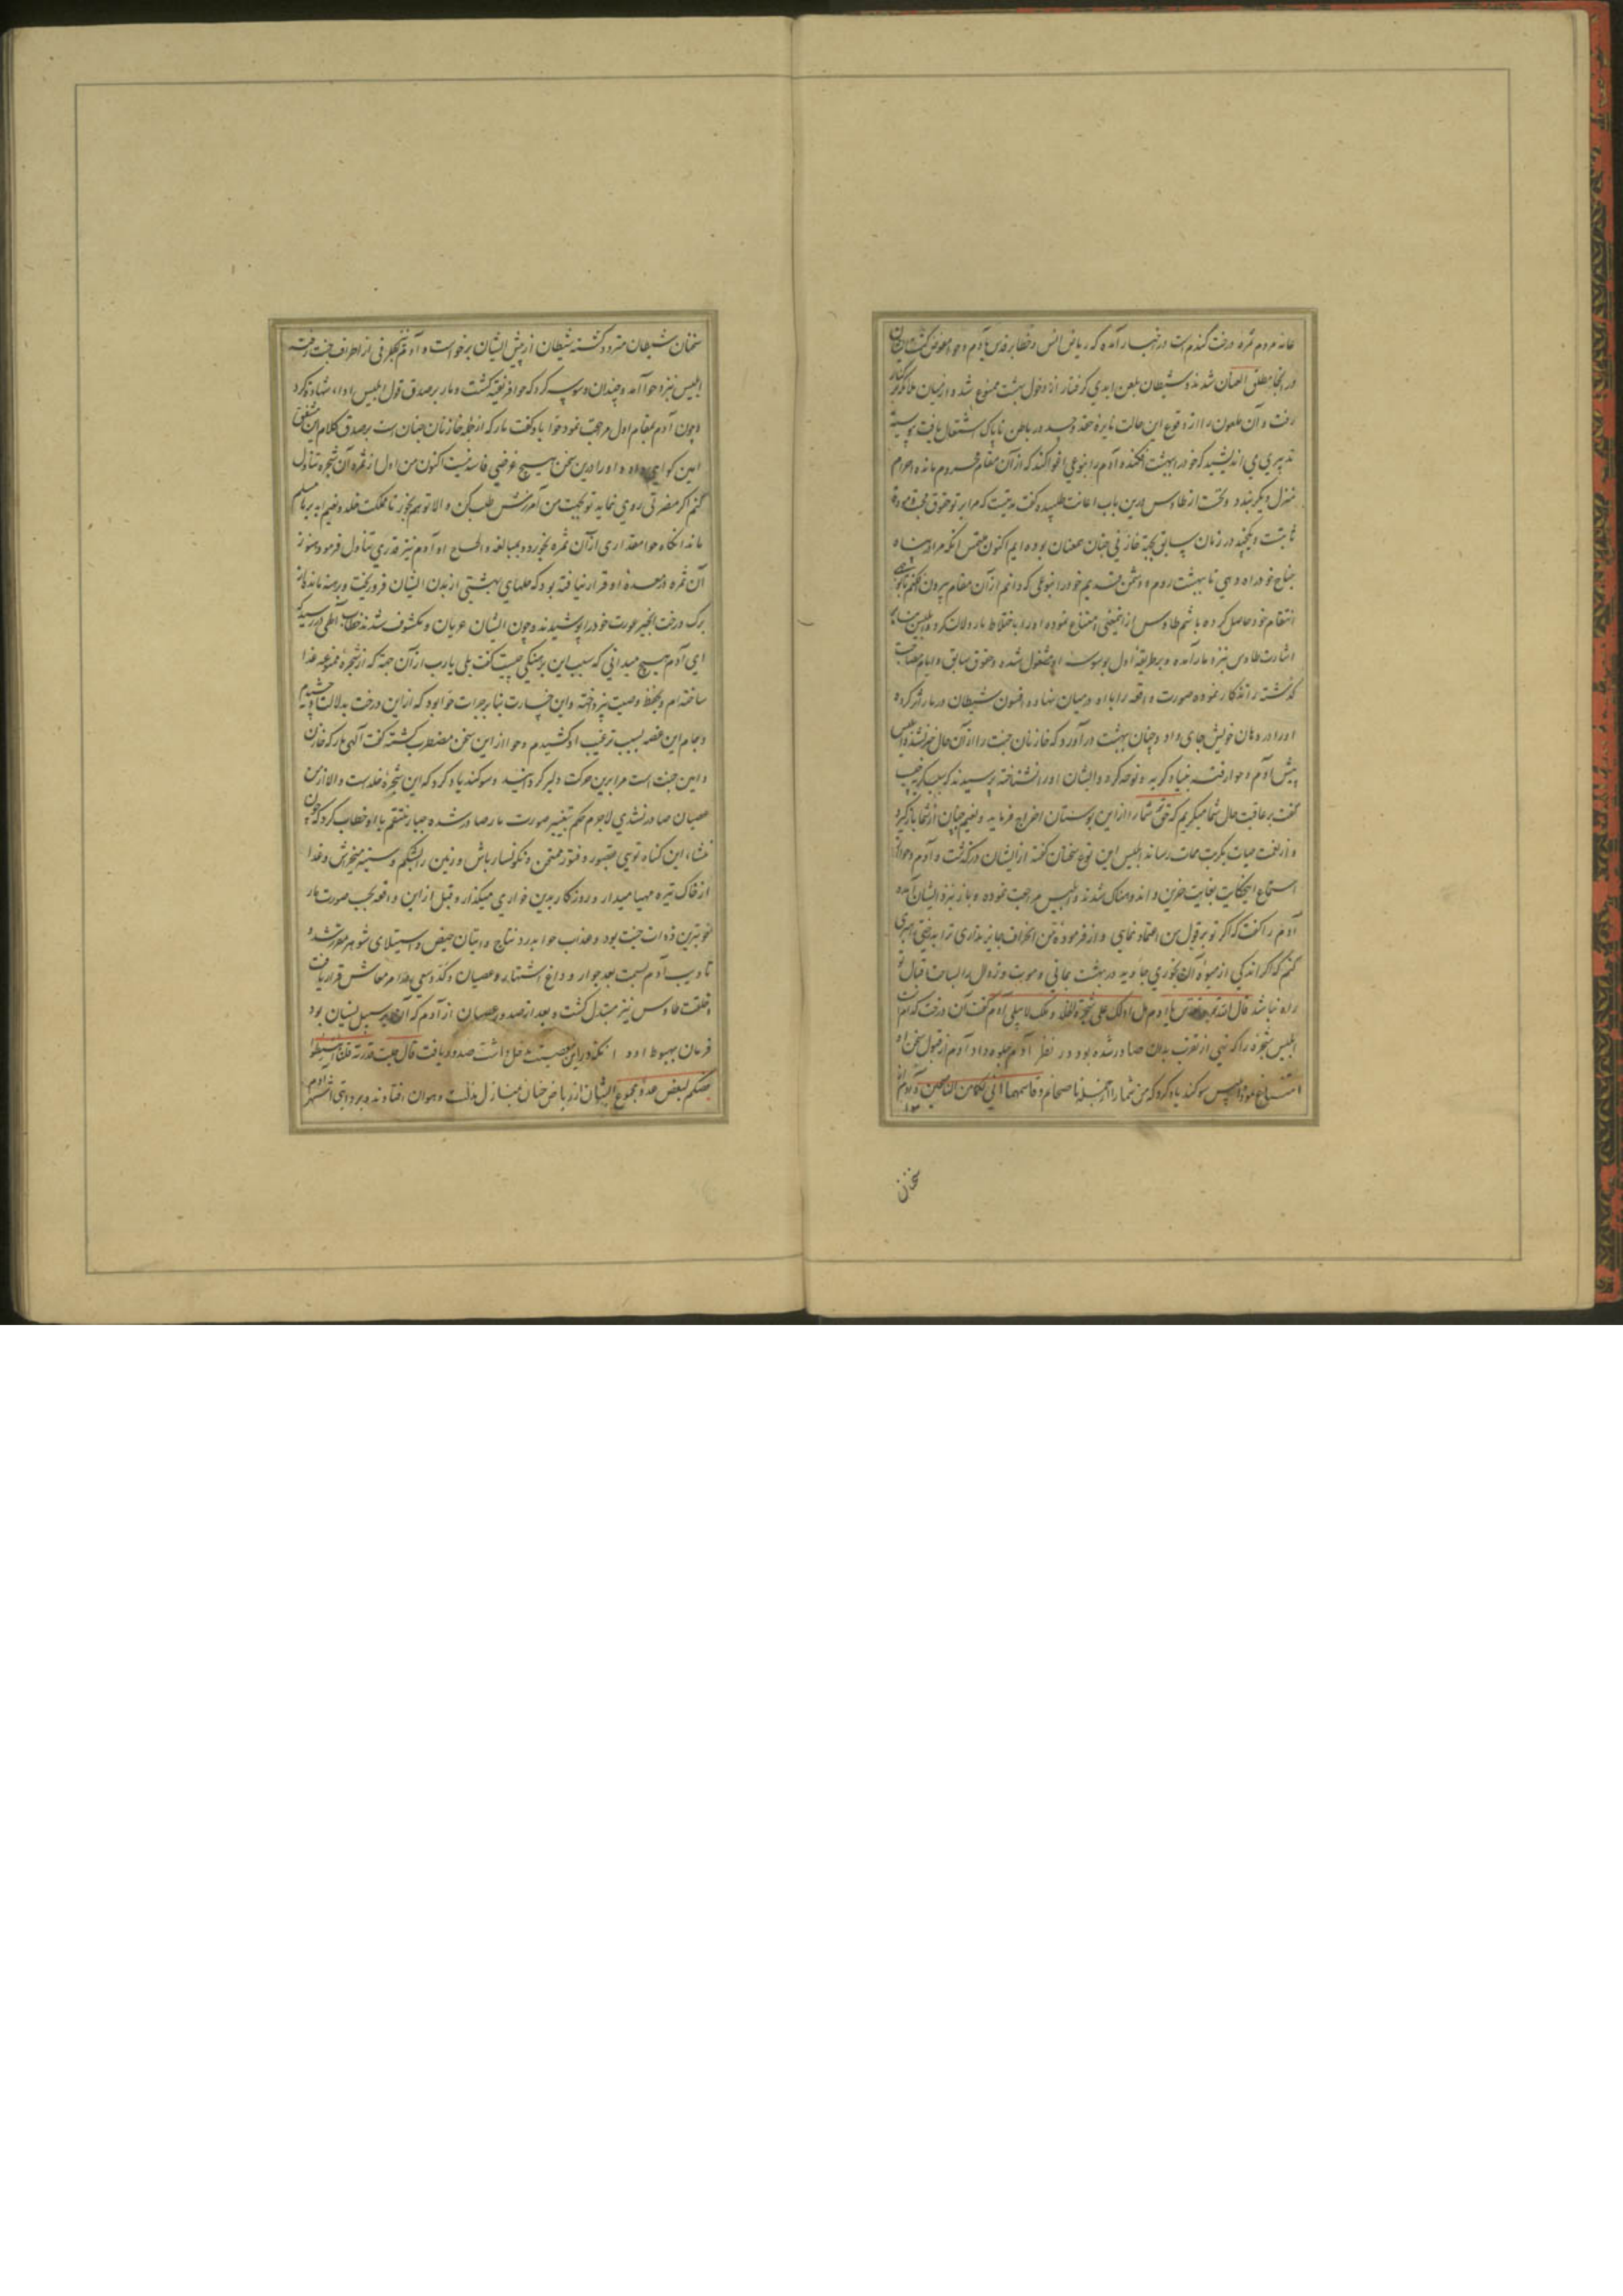 عامه مردم ثمره درخت گندم است در اخبار آمده که ریاض انس و حظایر قدس بآدم و حوا مفوض گشت و ایشان
در انجا مطلق العنان شدند و شیطان بلعن ابدی گرفتار از دخول بهشت ممنوع شد و از میان ملائکه بر کنار
رفت و آن ملعون را از وقوع این حالت نایره حقد و حسد در باطن ناپاک اشتعال یافت پیوسته
تدبیری می اندیشید که خود را ببهشت افکنده آدم را بنوعی اغوا کند که از آن مقام محروم مانده احرام
منزل دیگر بندد و نخست از طاوس درین باب اعانت طلبیده گفت بدینت که مرا بر تو حقوق محبت و مودة
ثابتست و یکچند در زمان سابق بجهة خازنی جنان همعنان بوده ایم اکنون ملتمس آنکه مرا در پناه
جناح خود راه دهی تا ببهشت روم و دشمن قدیم خود را بنوعی که دانم از آن مقام بیرون افکنم
انتقام خود حاصل کرده باشم طاوس از اینمعنی امتناع نموده او را باختلاط مار دلالت کرد و ابلیس
اشارت طاوس نزد مار آمده و بر طریقه اول بوسوسه او مشغول شده و حقوق سابق و ایام مصاحبت
گذشته را تذکار نموده صورت واقعه را با او در میان نهاد و افسون شیطان در مار اثر کرده
او را در دهان خویش جای داد و چنان ببهشت درآورد که خازنان جنت را از آن حال خبر نشد و ابلیس
پیش آدم و حوا رفته بنیاد گریه و نوحه کرد و ایشان او را نشناخته پرسیدند که سبب گریه چیست
گفت بر عاقبت حال شما میگریم که حق شما را از این بوستان اخراج فرماید و نعیم جنان از شما باز گیرد
و از نعمت حیات بکربت ممات رساند ابلیس این نوع سخنان گفته از ایشان درگذشت و آدم و حوا از
استماع اینحکایت بغایت حزین و اندوهناک شدند و ابلیس مراجعت نموده و باز نزد ایشان آمده
آدم را گفت که اگر تو بر قول من اعتماد نمای و از فرموده من انحراف جایز نداری ترا بدرختی رهبری
کنم که اگر اندکی از میوه آن بخوری جاوید در بهشت بمانی و موت و زوال را بساحت اقبال تو
راه نباشد قال الله یا آدم هل ادلک علی شجرة الخلد و ملک لا یبلی آدم گفت آن درخت کدام است
ابلیس شجره را که نهی از تقرب بدان صادر شده بود در نظر آدم جلوه داد آدم از قبول سخن او
امتناع نمود و ابلیس سوگند یاد کرد که من شما را از جمله ناصحانم و قاسمهما انی لکما من الناصحین و آدم از
سخنان
سخنان شیطان متردد گشته شیطان از پیش ایشان برخواست و آدم بطرفی از اطراف جنت رفته
ابلیس نزد حوا آمد و چندان وسوسه کرد که حوا فریفته گشت و مار بر صدق قول ابلیس اداء شهادت کرد
و چون آدم بمقام اول مراجعت نمود حوا با او گفت مار که از جمله خازنان جنان است بر صدق کلام این مشفق
امین گواهی داده و او را درین سخن هیچ غرضی فاسد نیست اکنون من اول از ثمره آن شجره تناول
کنم اگر مضرتی روی نماید تو بجهت من آمرزش طلب کن و الا تو هم بخور تا مملکت خلد و نعیم ابد بر ما مسلم
ماند انگاه حوا مقداری از آن ثمره بخورد و بمبالغه و الحاح او آدم نیز قدری تناول فرمود و هنوز
آن ثمره در معده او قرار نیافته بود که حلهای بهشتی از بدن ایشان فرو ریخت و برهنه ماندند از
برگ درخت انجیر عورت خود را پوشیدند و چون ایشان عریان و مکشوف شدند خطاب آلهی در رسید که
ای آدم هیچ میدانی که سبب این برهنگی چیست گفت بلی یا رب از آن جهة که از شجره ممنوعه غذا
ساخته ام و بحفظ وصیت نپرداخته و این جسارت بنابر جرات حوا بود که از این درخت بدلالت او چشیدم
و جام این غصه بسبب ترغیب او کشیدم و حوا از این سخن مضطرب گشته گفت آلهی مار که خازن
و امین جنت است مرا برین حرکت دلیر گردانید و سوگند یاد کرد که این شجره خلد است و الا از من
عصیان صادر نشدی لاجرم حکم بتغییر صورت مار صادر شده جبار منتقم با او خطاب کرد که چون
منشاء این گناه توئی مقهور و فتور ممتحن و نگونسار باش و زمین را بشکم و سینه میخراش و غذا
از خاک تیره مهیا میدار و روزگار بدین خواری میگذار و قبل از این واقعه بحسب صورت مار
خوبترین ذوات جنت بود و عذاب حوا بدرد نتاج و اتیان حیض و استیلای شوهر مقرر شد و
تادیب آدم بسمت بعد جوار و داغ اشتهار و عصیان و کد و سعی در امر معاش قرار یافت
و خلقت طاوس نیز مبتدل گشت و بعد از صدور عصیان از آدم که آن بر سبیل نسیان بود
فرمان بهبوط او و انکه در این معصیت مدخل داشت صدور یافت قال جلت قدرته قلنا اهبطوا
بعضکم لبعض عدو مجموع ایشان از ریاض جنان بمنازل مذلت و هوان افتادند و بروایتی اشهر آدم